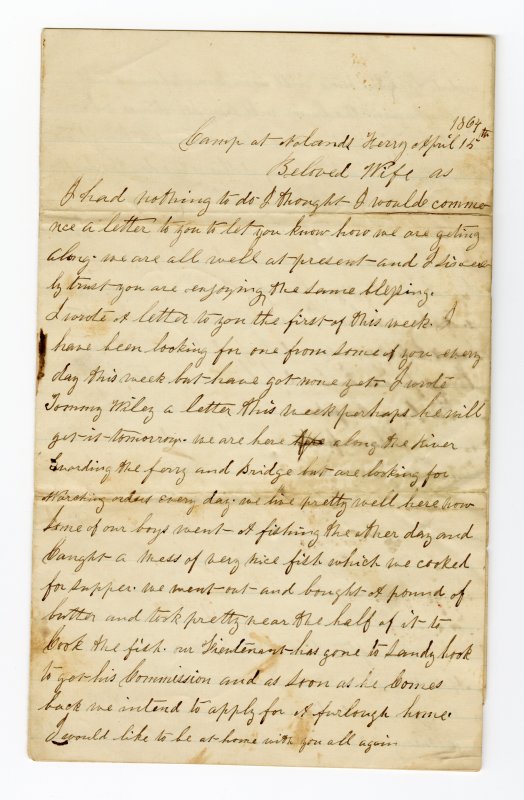 1864
Camp at Nolands Ferry April 15th
Beloved Wife as
I had nothing to do I thought I would comme
nce a letter to you to let you know how we are geting
along. we are all well at present and I sincer
ly trust you are enjoying the same blessing.
I wrote A letter to you the first of this week. I
have been looking for one from some of you every
day this week but have got none yet. I wrote
Tommy Wiley a letter this week perhaps he will
get it tomorrow. we are here along the River
Guarding the ferry and Bridge but are looking for
Marching orders every day. we live pretty well here now
Some of our boys went A fishing the other day and
Caught a mess of very nice fish which we cooked
for supper. we went out and bought A pound of
butter and took pretty near the half of it to
Cook the fish. our Lieutenant has gone to Sandy hook
to get his Commission and as soon as he Comes
back we intend to apply for A furlough home.
I would like to be at home with you all again